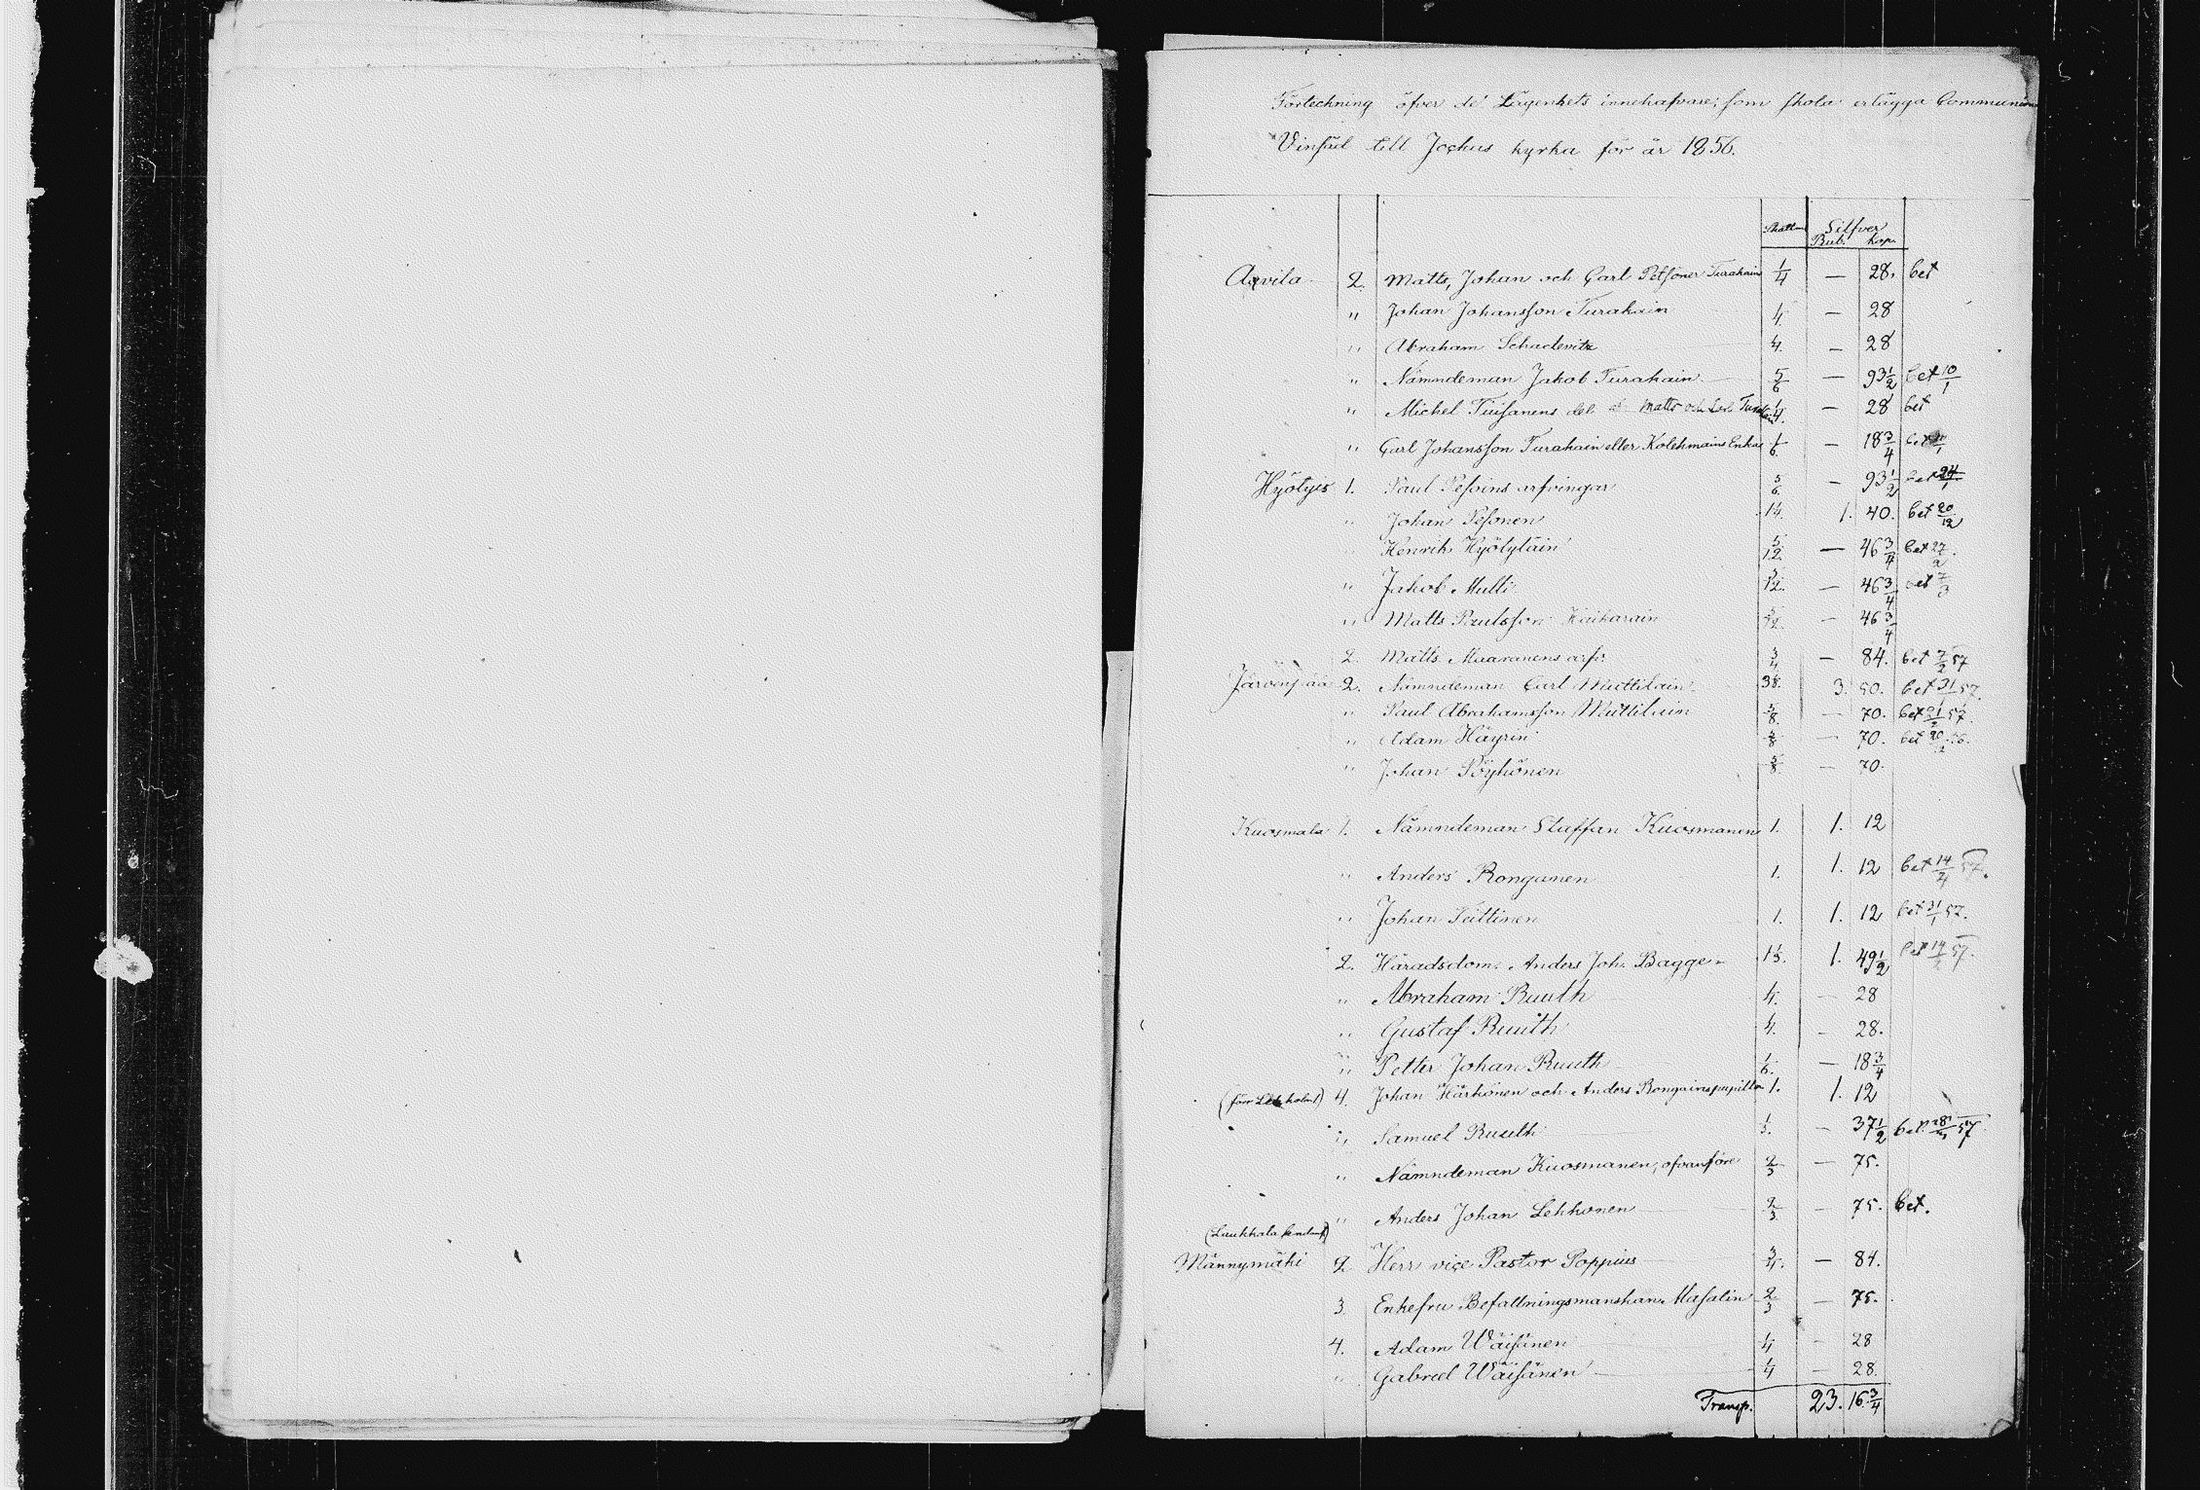 Förtechning öfver de Lägenhets innehafvare, som skola erlägga Communion
Vinsäd till Jockus kyrka för år 1856.
Skatt Silfver
Rub. kop.
Auvila 2. Matts, Johan och Carl Petssöner Turahain 1/4 — 28. bet
" Johan Johansson Turahain 1/4. — 28
" Abraham Schadevitz 1/4. — 28
" Nämndeman Jakob Turahain 5/6 — 93 1/2 bet 10/1
" Michel Tiisanens del Matts och 1/4. — 28 bet
" Carl Johansson Turahain eller Kolehmains Enka 1/6. — 18 3/4 bet
Hyötyis 1. Paul Pesoins arfvingar 5/6. — 93 1/2 bet 24/1
" Johan Pesonen 1 1/4. 1. 40. bet 20/12
" Henrik Hyötyläin 5/12. — 46 3/4 bet 27/2.
" Jakob Multi 5/12. — 46 3/4 bet 7/3
" Matts Paulsson Kaikarain 5/12. — 46 3/4
2. Matts Maaranens arfv. 3/4 — 84. bet 7/2 57
Järvenpää 2. Nämndeman Carl Muttilain 3 1/8. 3. 50. bet 31/1 57.
" Paul Abrahamsson Muttilain 5/8. — 70. bet 21/2 57.
" Adam Häyrin 5/8 — 70. bet 20/12 56.
" Johan Pöyhönen 5/8. — 70.
Kuosmala 1. Nämndeman Staffan Kuosmanen 1. 1. 12
" Anders Ronganen 1. 1. 12 bet 14/4 57.
" Johan Teittinen 1. 1. 12 bet 31/1 57.
2. Häradsdom. Anders Joh. Bagge 1 1/3. 1. 49 1/2 bet 14/2 57.
" Abraham Ruuth 1/4. — 28
" Gustaf Ruuth 1/4. — 28.
" Petter Johan Ruuth 1/6. — 18 3/4
4. Johan Härkönen och Anders Rongains pupiller 1. 1. 12
" Samuel Ruuth 1/3. — 37 1/2 bet. 28/3 57
" Nämndeman Kuosmanen, ofvanföre 2/3 — 75.
" Anders Johan Lehkonen 2/3. — 75. bet.
Männymäki 2. Herr vice Pastor Poppius 3/4. — 84.
3. Enkefru Befallningsmanskan Masalin 2/3 — 75.
4. Adam Wäisänen 1/4 — 28
" Gabriel Wäisänen 1/4 — 28.
Transp. 23. 16 3/4